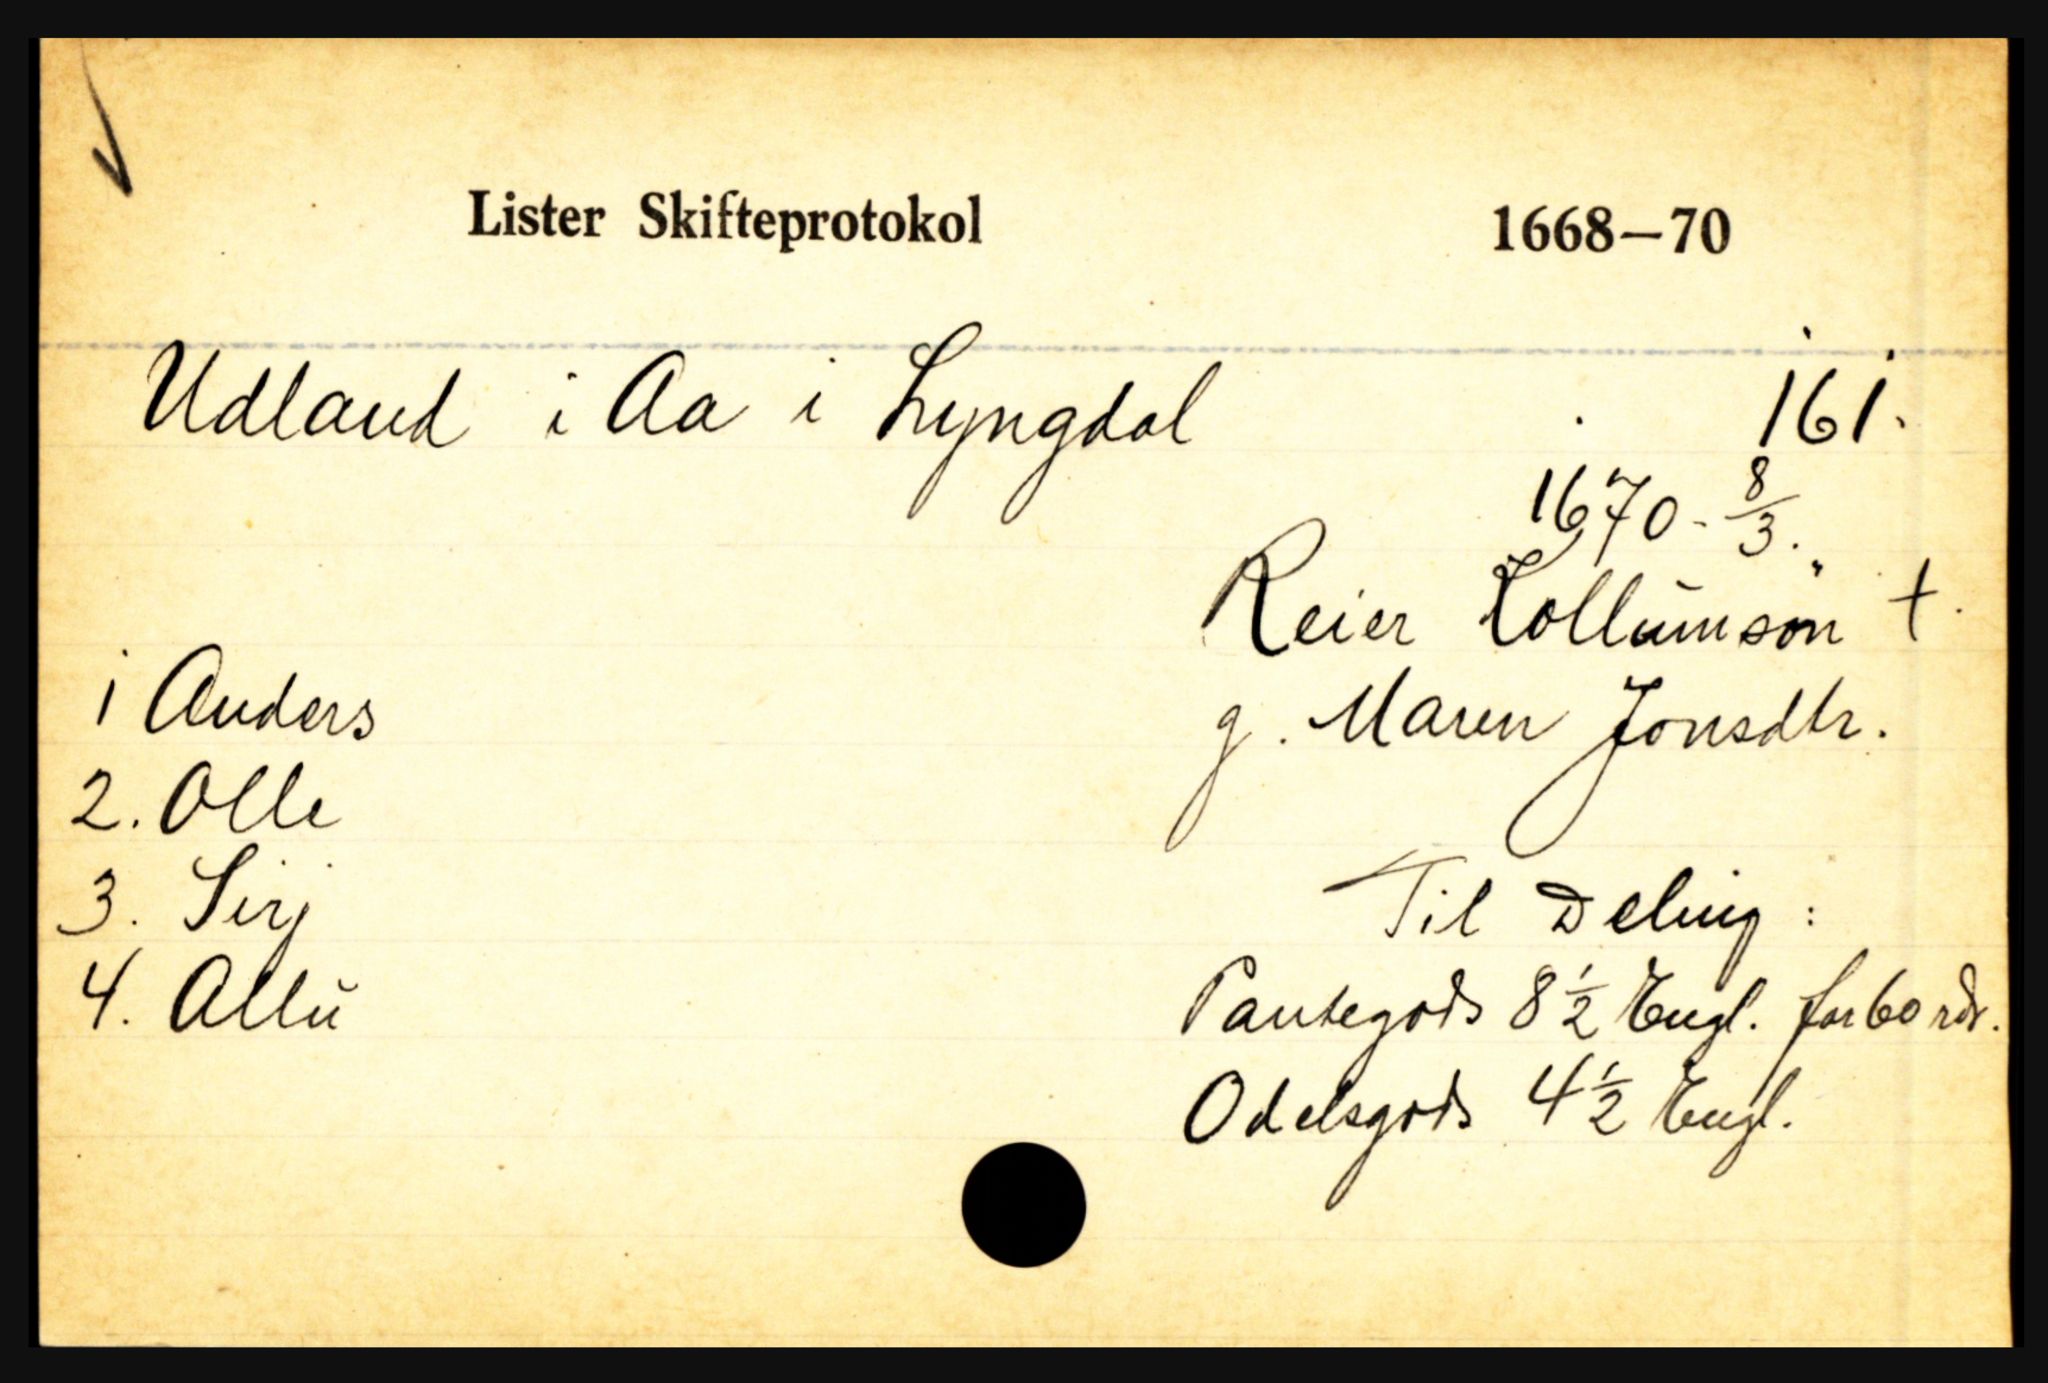 Lister Skifteprotokol 1668—70
Udland i Aa i Lyngdal 161.
1670 - 8/3.
Reier Tollumsön †.
g. Maren Jonsdtr.
1 Anders
2. Olle
3. Sirj
4. Allů
Til Deling :
Pantegods 8 1/2 Engl. for 60 rdr.
Odelsgods 4 1/2 Engl.